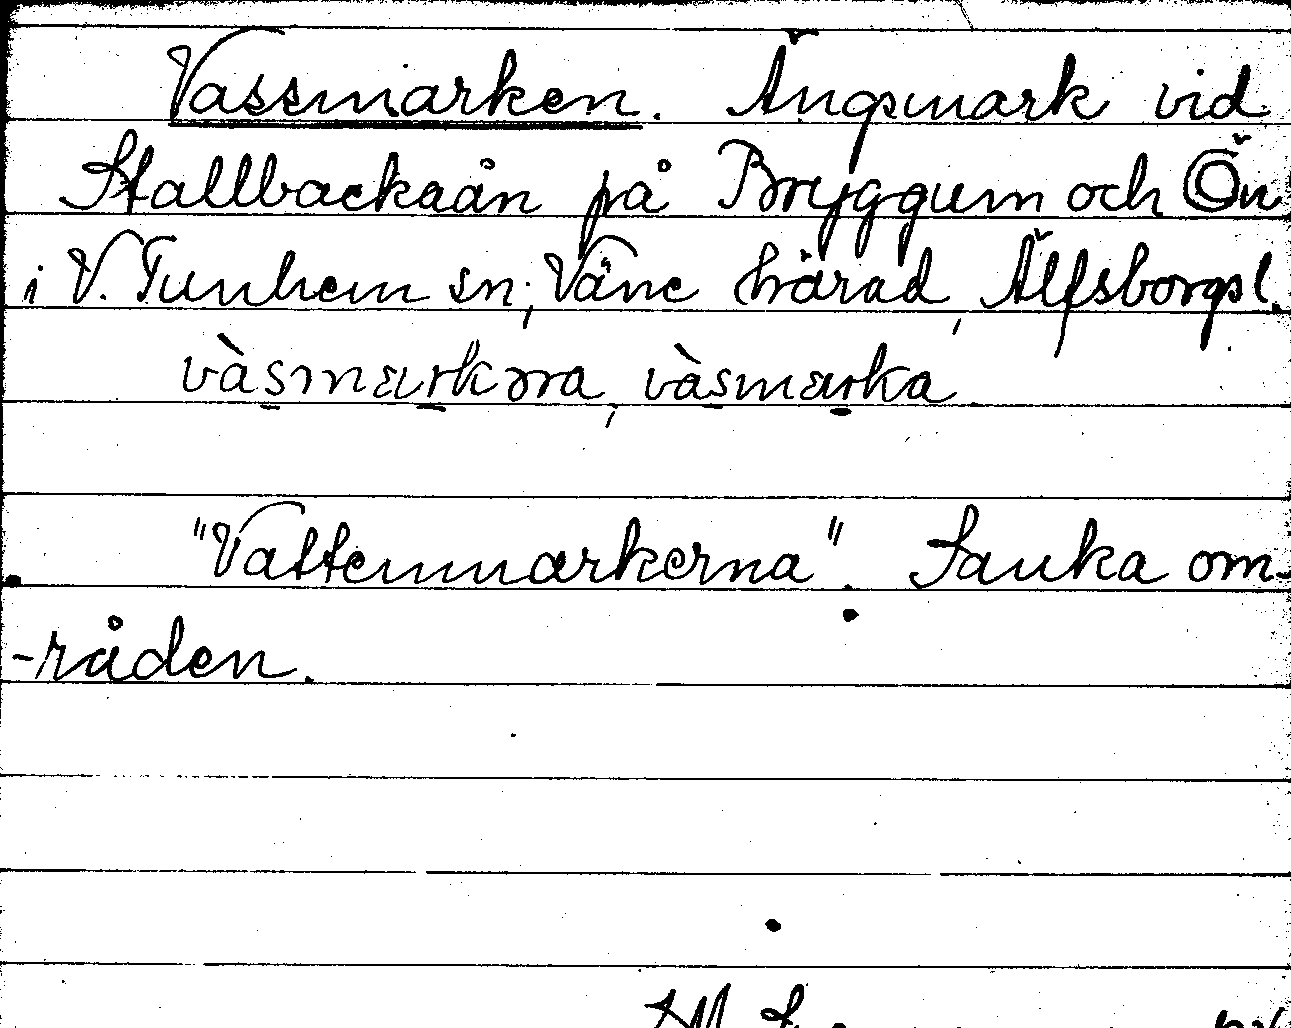 Vassmarken. Ängsmark vid
Stallbackaån på Bryggum och Ön
i V. Tunhem sn; Väne härad, Älfsborgs l.
vàsmarkəra, vàsmarka.
"Vattenmarkerna". Sanka om-
-råden.